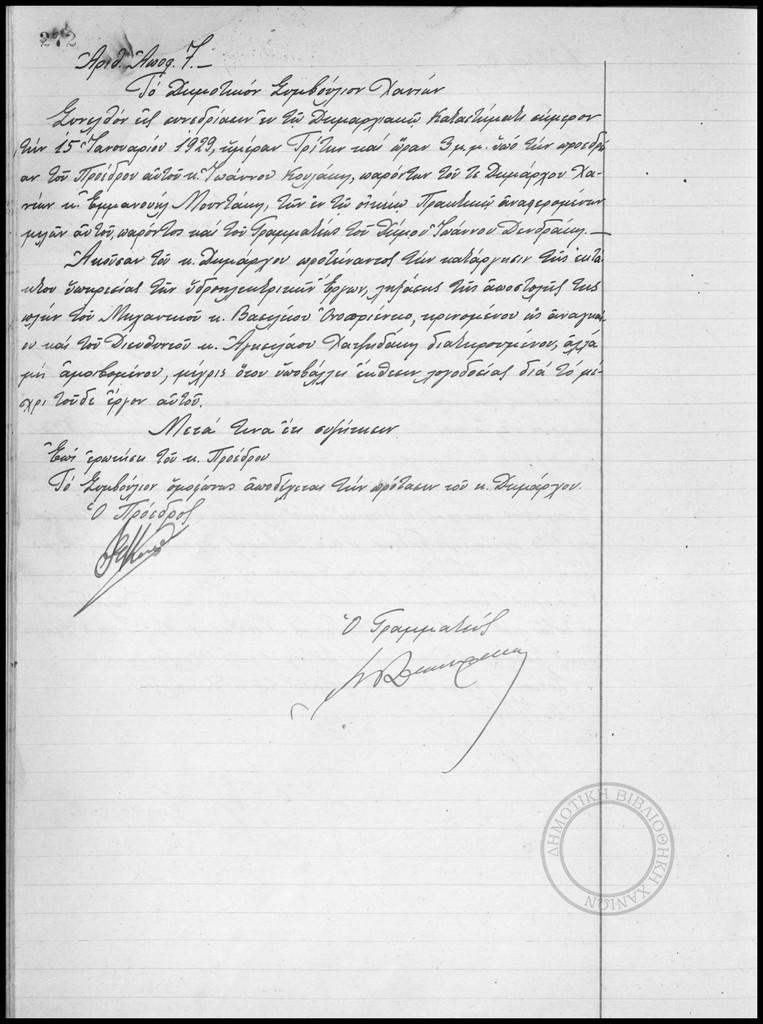 272
Ἀριθ. Ἀποφ. 7.–
Τό Δημοτικόν Συμβούλιον Χανίων
Συνελθόν εἰς συνεδρίασιν ἐν τῷ Δημαρχιακῷ Καταστήματι σήμερον
τήν 15 Ἰανουαρίου 1929, ἡμέραν Τρίτην καί ὥραν 3 μ.μ. ὑπό τήν προεδρί
αν τοῦ Προέδρου αὐτοῦ κ. Ἰωάννου, παρόντων τοῦ τε Δημάρχου Χα-
νίων κ. Ἐμμανουήλ Μουντάκη, τῶν ἐν τῷ οἰκείῳ Πρακτικῷ ἀναφερομένων
μελῶν αὐτοῦ, παρόντος καί τοῦ Γραμματέως τοῦ Δήμου Ἰωάννου Δενδράκη.–
Ἀκοῦσαν τοῦ κ. Δημάρχου προτείναντος τήν κατάργησιν τῆς ἐκτά
κτου ὑπηρεσίας τῶν ὑδροηλεκτρικῶν Ἔργων, ληξάσης τῆς ἀποστολῆς της
πλήν τοῦ Μηχανικοῦ κ. Βασιλείου, κρινομένου ὡς ἀναγκαί
ου καί τοῦ Διευθυντοῦ κ. Ἀγησιλάου Χατζηδάκη διατηρουμένου, ἀλλά
μή ἀμοιβομένου, μέχρις ὅτου ὑποβάλλῃ ἔκθεσιν λογοδοσίας διά τό μέ-
χρι τοῦδε ἔργον αὐτοῦ.
Μετά τινα ἔτι συζήτησιν
Ἐπί ἐρωτήσει τοῦ κ. Προέδρου
Τό Συμβούλιον ὁμοφώνως ἀποδέχεται τήν πρότασιν τοῦ κ. Δημάρχου.
Ὁ Πρόεδρος
Ὁ Γραμματεύς
ΔΗΜΟΤΙΚΗ ΒΙΒΛΙΟΘΗΚΗ ΧΑΝΙΩΝ